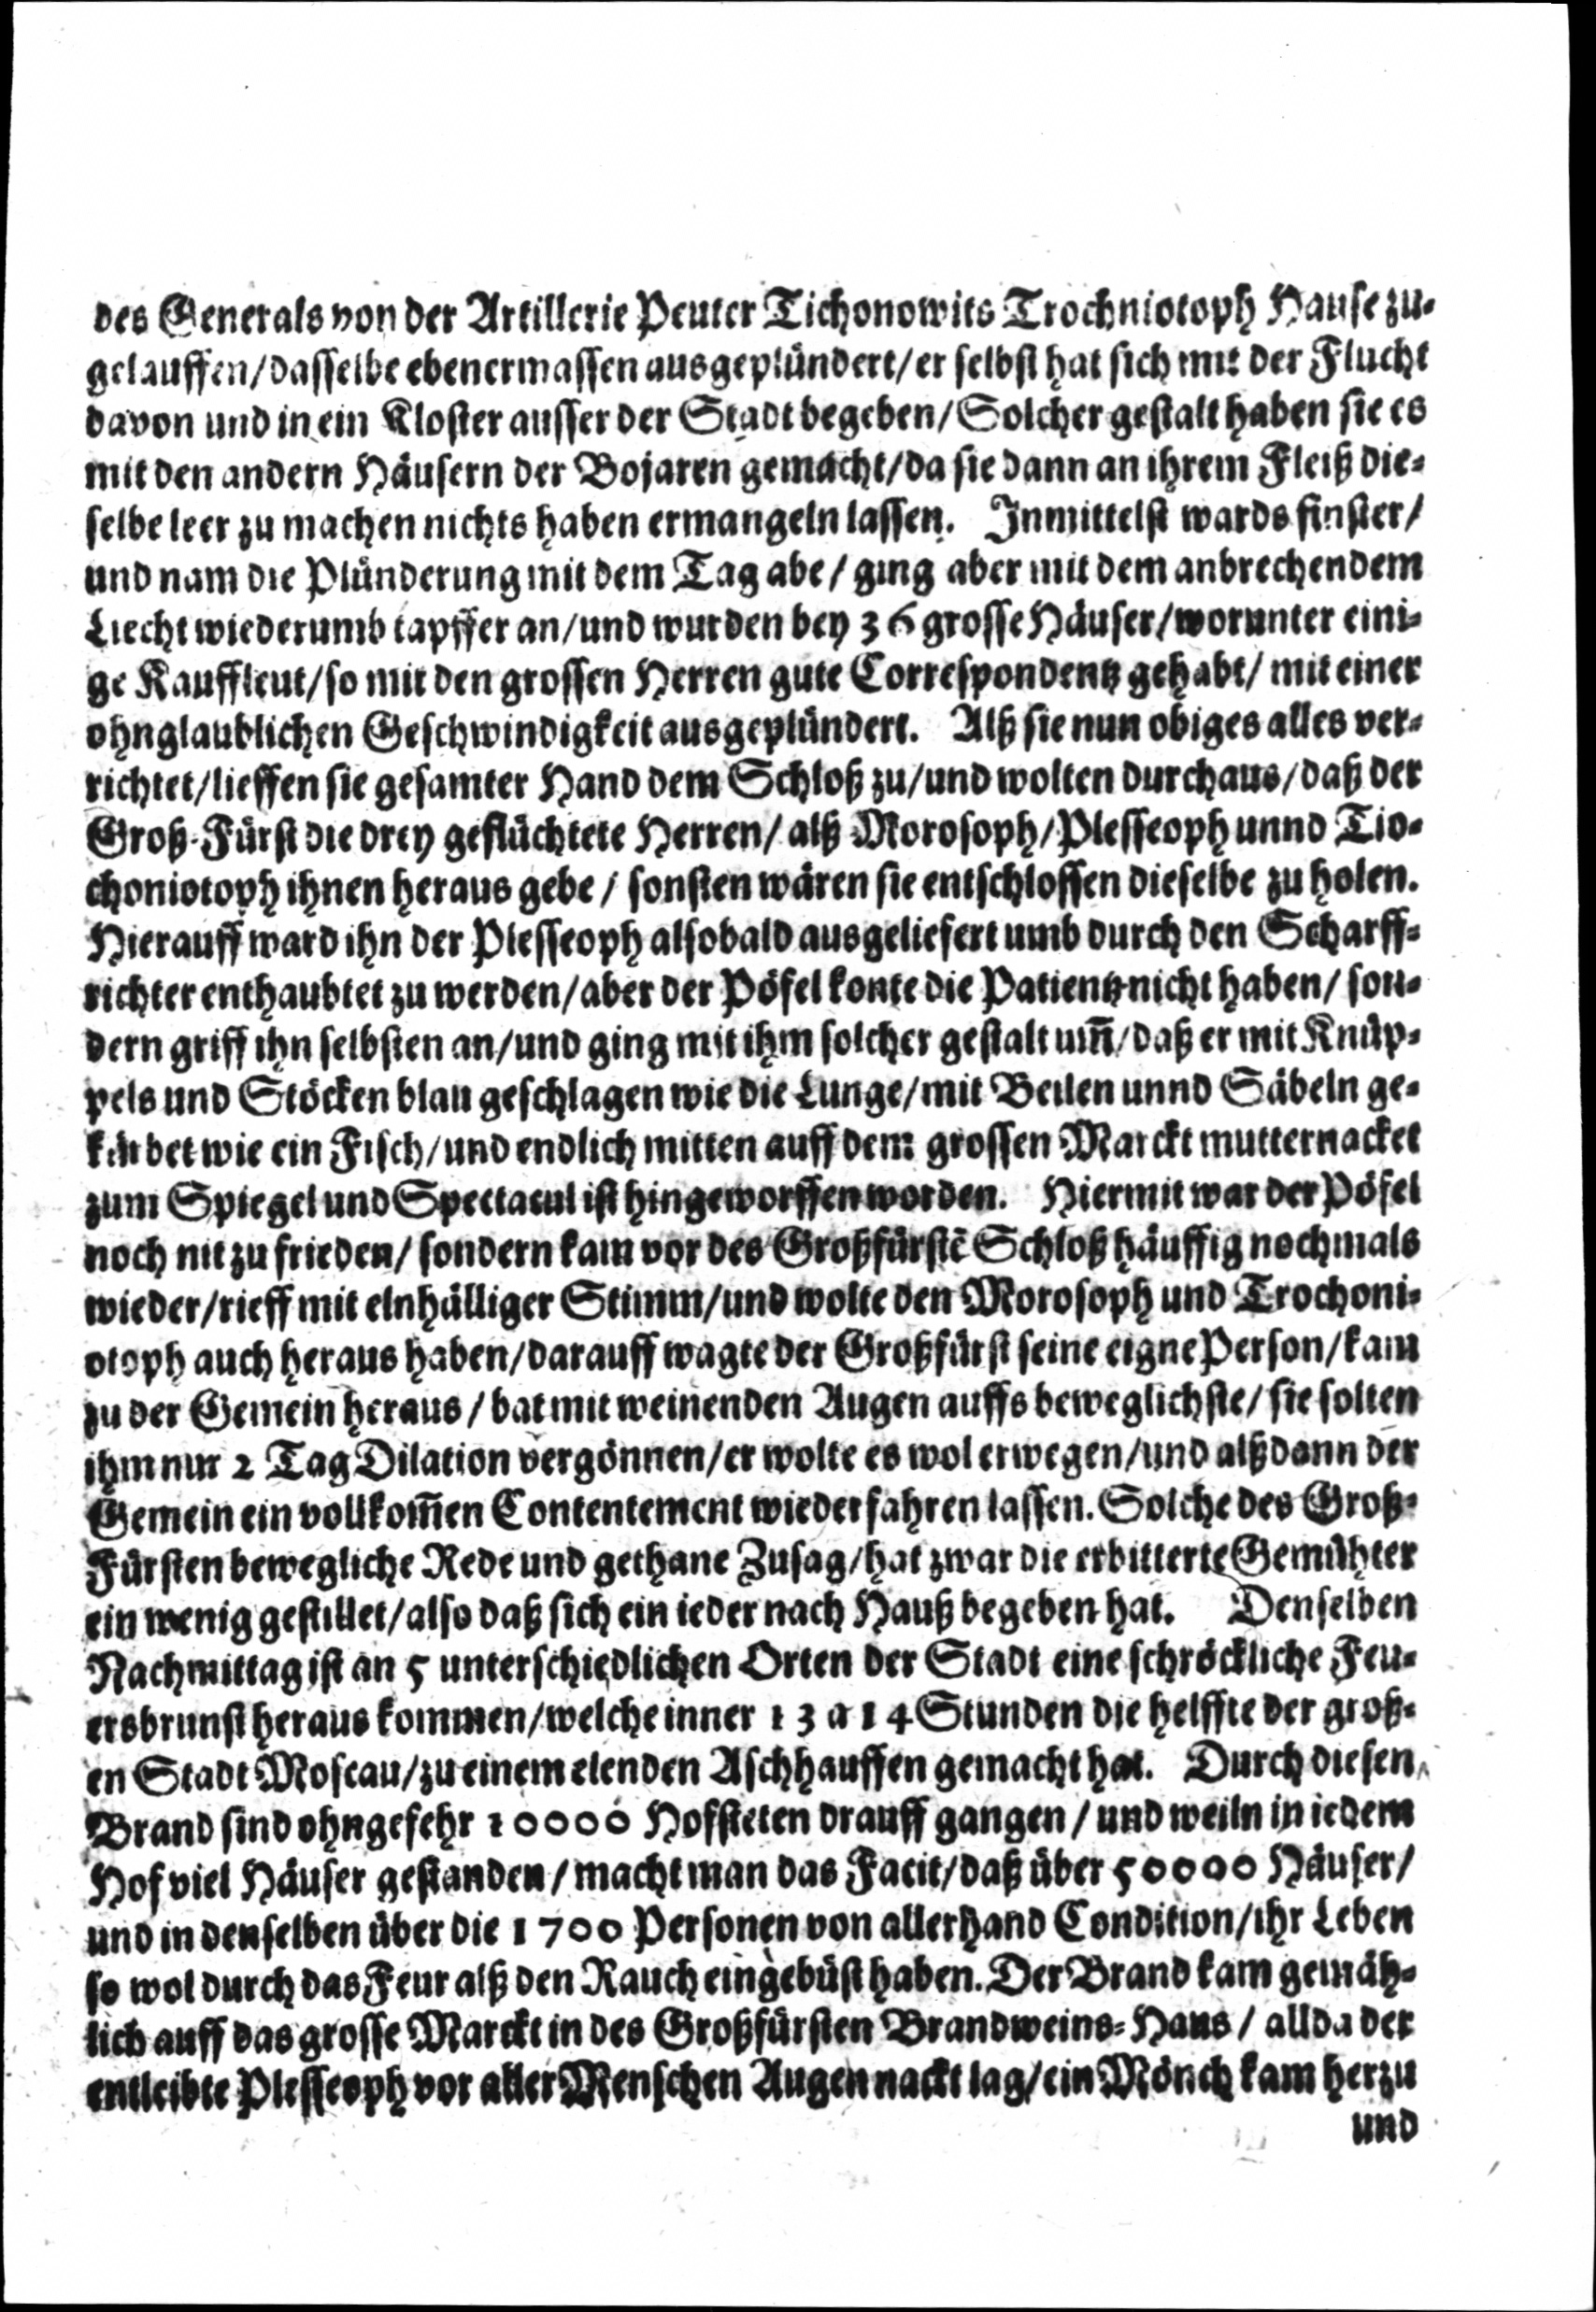 des Generals von der Artillerie Peuter Tichonowits Trochniotoph Hause zu-
gelauffen/dasselbe ebenermassen ausgeplündert/er selbst hat sich mit der Flucht
davon und in ein Kloster ausser der Stadt begeben/Solcher gestalt haben sie es
mit den andern Häusern der Bojaren gemacht/da sie dann an ihrem Fleiß die-
selbe leer zu machen nichts haben ermangeln lassen. Inmittelst wards finster/
und nam die Plünderung mit dem Tag abe/ ging aber mit dem anbrechendem
Liecht wiederumb tapffer an/und wurden bey 36 grosse Häuser/worunter eini-
ge Kauffleut/so mit den grossen Herren gute Correspondentz gehabt/ mit einer
ohnglaublichen Geschwindigkeit ausgeplündert. Alß sie nun obiges alles ver-
richtet/lieffen sie gesamter Hand dem Schloß zu/und wolten durchaus/daß der
Groß-Fürst die drey geflüchtete Herren/ alß Morosoph/Plesseoph unnd Tio-
choniotoph ihnen heraus gebe/ sonsten wären sie entschlossen dieselbe zu holen.
Hierauff ward ihn der Plesseoph alsobald ausgeliefert umb durch den Scharff-
richter enthaubtet zu werden/aber der Pöfel konte die Patientz nicht haben/ son-
dern griff ihn selbsten an/und ging mit ihm solcher gestalt um̃/daß er mit Knüp-
pels und Stöcken blau geschlagen wie die Lunge/mit Beilen unnd Säbeln ge-
kürbet wie ein Fisch/und endlich mitten auff dem grossen Marckt mutternacket
zum Spiegel und Spectacul ist hingeworffen worden. Hiermit war der Pöfel
noch nit zu frieden/ sondern kam vor des Großfürstẽ Schloß häuffig nochmals
wieder/rieff mit einhälliger Stimm/und wolte den Morosoph und Trochoni-
otoph auch heraus haben/darauff wagte der Großfürst seine eigne Person/kam
zu der Gemein heraus/ bat mit weinenden Augen auffs beweglichste/ sie solten
ihm nur 2 Tag Dilation vergönnen/er wolte es wol erwegen/und alßdann der
Gemein ein vollkom̃en Contentement wiederfahren lassen. Solche des Groß-
Fürsten bewegliche Rede und gethane Zusag/hat zwar die erbitterte Gemühter
ein wenig gestillet/also daß sich ein ieder nach Hauß begeben hat. Denselben
Nachmittag ist an 5 unterschiedlichen Orten der Stadt eine schröckliche Feu-
ersbrunst heraus kommen/welche inner 13 a 14 Stunden die helffte der groß-
en Stadt Moscau/zu einem elenden Aschhauffen gemacht hat. Durch diesen
Brand sind ohngefehr 10000 Hofsteten drauff gangen/ und weiln in iedem
Hof viel Häuser gestanden/ macht man das Facit/daß über 50000 Häuser/
und in denselben über die 1700 Personen von allerhand Condition/ihr Leben
so wol durch das Feur alß den Rauch eingebüst haben. Der Brand kam gemäh-
lich auff das grosse Marckt in des Großfürsten Brandweins-Haus/ allda der
entleibte Plesseoph vor aller Menschen Augen nackt lag/ein Mönch kam herzu
und